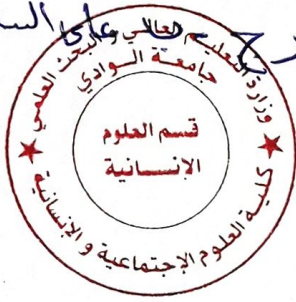 على
وزارة التعليم العالي والبحث العلمي
جامعة الوادي
قسم العلوم
الإنسانية
كلية العلوم الإجتماعية و الإنسانية